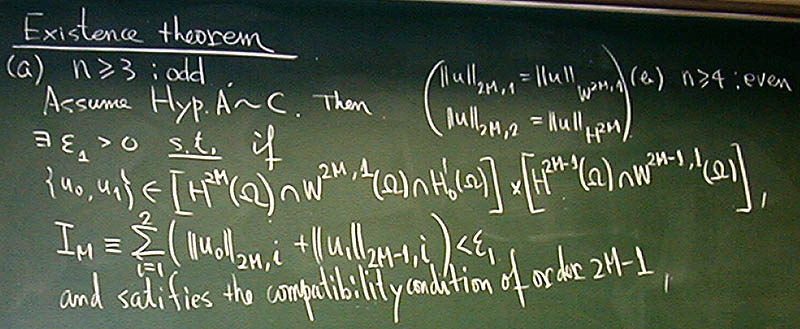 Existence theorem
(a) n ≥ 3 ; odd
Assume Hyp. A ~ C. Then
(‖u‖_{2M,1} = ‖u‖_{W^{2M,1}}
‖u‖_{2M,2} = ‖u‖_{H^{2M}})
(b) n ≥ 4 ; even
∃ ε₁ > 0 s.t. if
{u₀, u₁} ∈ [H^{2M}(Ω) ∩ W^{2M,1}(Ω) ∩ H₀¹(Ω)] × [H^{2M-1}(Ω) ∩ W^{2M-1,1}(Ω)],
I_M ≡ Σ_{i=1}^{2} (‖u₀‖_{2M,i} + ‖u₁‖_{2M-1,i}) < ε₁
and satifies the compatibility condition of order 2M-1,